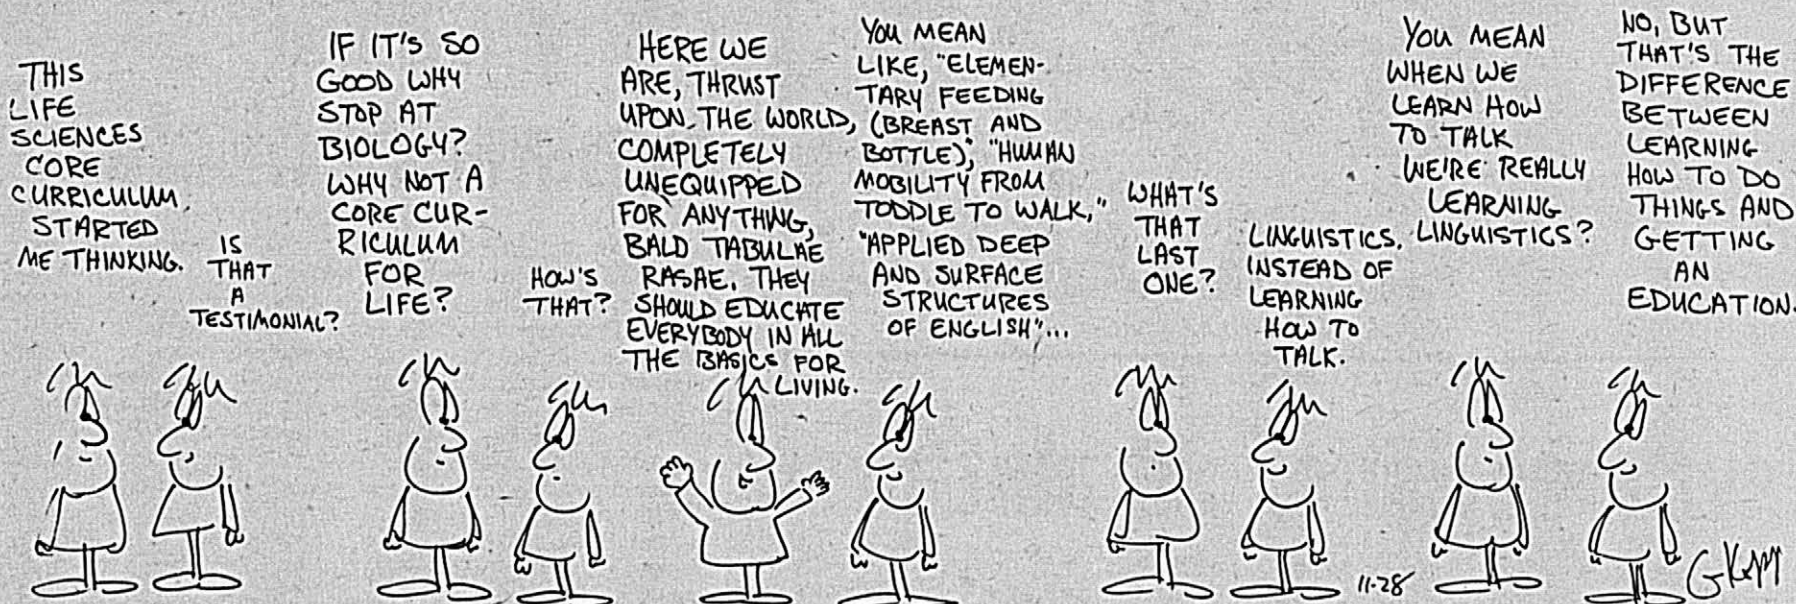 THIS
LIFE
SCIENCES
CORE
CURRICULUM
STARTED
ME THINKING.
IS
THAT
A
TESTIMONIAL?
IF IT'S SO
GOOD WHY
STOP AT
BIOLOGY?
WHY NOT A
CORE CUR-
RICULUM
FOR
LIFE?
HOW'S
THAT?
HERE WE
ARE, THRUST
UPON THE WORLD,
COMPLETELY
UNEQUIPPED
FOR ANYTHING,
BALD TABULAE
RASAE. THEY
SHOULD EDUCATE
EVERYBODY IN ALL
THE BASICS FOR
LIVING.
YOU MEAN
LIKE, "ELEMEN-
TARY FEEDING
(BREAST AND
BOTTLE)", "HUMAN
MOBILITY FROM
TODDLE TO WALK,"
"APPLIED DEEP
AND SURFACE
STRUCTURES
OF ENGLISH"...
WHAT'S
THAT
LAST
ONE?
LINGUISTICS.
INSTEAD OF
LEARNING
HOW TO
TALK.
YOU MEAN
WHEN WE
LEARN HOW
TO TALK
WE'RE REALLY
LEARNING
LINGUISTICS?
NO, BUT
THAT'S THE
DIFFERENCE
BETWEEN
LEARNING
HOW TO DO
THINGS AND
GETTING
AN
EDUCATION.
11-28